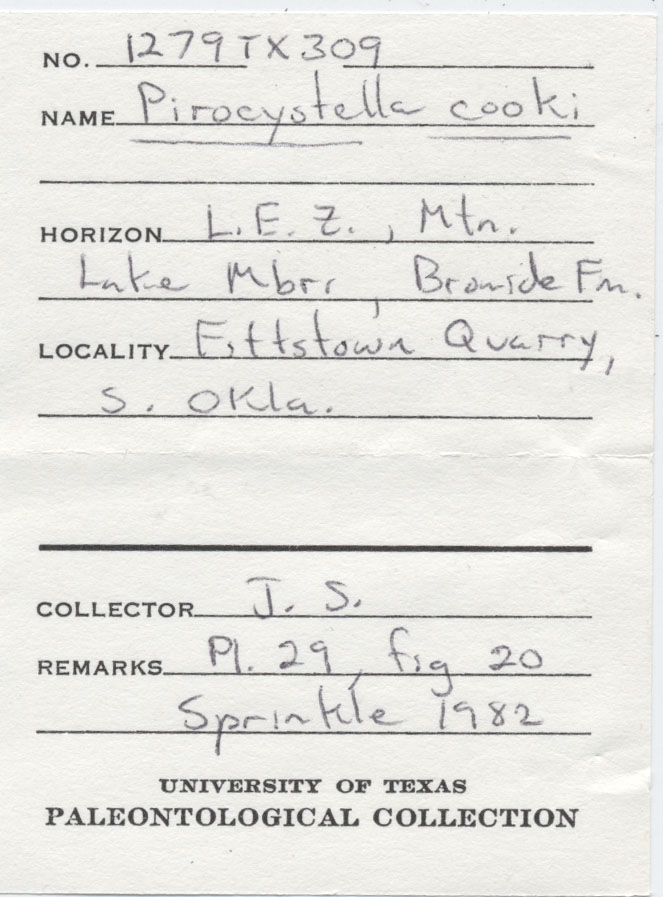 NO. 1279TX309
NAME Pirocystella cooki
HORIZON L.E.Z., Mtn.
Lake Mbr, Bromide Fm.
LOCALITY Fittstown Quarry,
S. Okla.
COLLECTOR J. S.
REMARKS Pl. 29, fig 20
Sprinkle 1982
UNIVERSITY OF TEXAS
PALEONTOLOGICAL COLLECTION